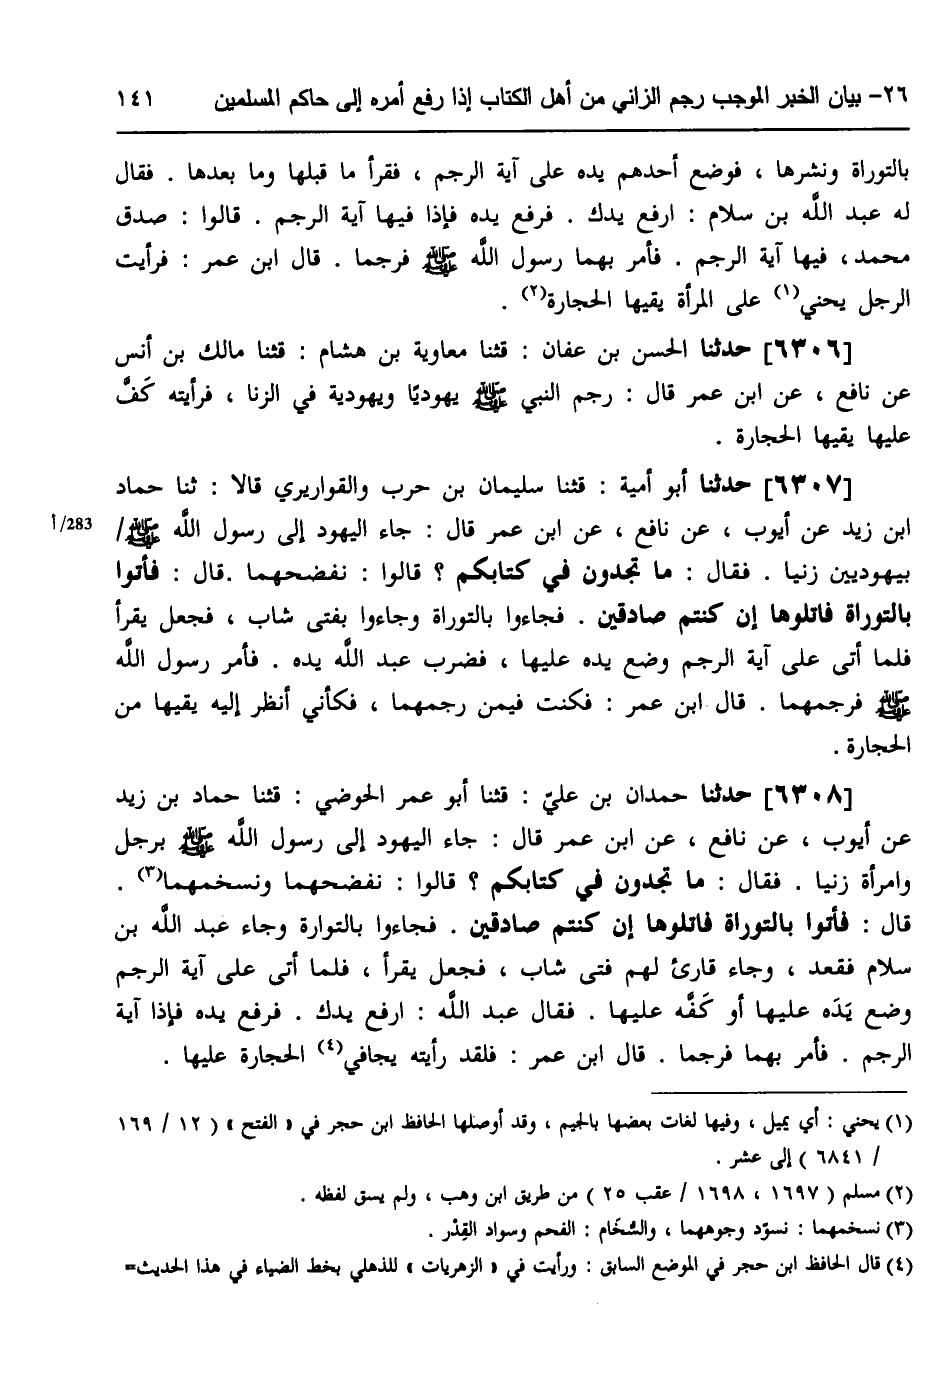 ٢٦- بيان الخبر الموجب رجم الزاني من أهل الكتاب إذا رفع أمره إلى حاكم المسلمين ١٤١
بالتوراة ونشرها ، فوضع أحدهم يده على آية الرجم ، فقرأ ما قبلها وما بعدها . فقال
له عبد اللَّه بن سلام : ارفع يدك . فرفع يده فإذا فيها آية الرجم . قالوا : صدق
محمد، فيها آية الرجم . فأمر بهما رسول اللَّه ﷺ فرجما . قال ابن عمر : فرأيت
الرجل يحني(١) على المرأة يقيها الحجارة(٢) .
[٦٣٠٦] حدثنا الحسن بن عفان : قثنا معاوية بن هشام : قثنا مالك بن أنس
عن نافع ، عن ابن عمر قال : رجم النبي ﷺ يهوديًا ويهودية في الزنا ، فرأيته كَفَّ
عليها يقيها الحجارة .
[٦٣٠٧] حدثنا أبو أمية : قثنا سليمان بن حرب والقواريري قالا : ثنا حماد
ابن زيد عن أيوب ، عن نافع ، عن ابن عمر قال : جاء اليهود إلى رسول اللَّه ﷺ/ 283/أ
بيهوديين زنيا . فقال : ما تجدون في كتابكم ؟ قالوا : نفضحهما .قال : فأتوا
بالتوراة فاتلوها إن كنتم صادقين . فجاءوا بالتوراة وجاءوا بفتى شاب ، فجعل يقرأ
فلما أتى على آية الرجم وضع يده عليها ، فضرب عبد اللَّه يده . فأمر رسول اللَّه
ﷺ فرجمهما . قال ابن عمر : فكنت فيمن رجمهما ، فكأني أنظر إليه يقيها من
الحجارة .
[٦٣٠٨] حدثنا حمدان بن عليّ : قثنا أبو عمر الحوضي : قثنا حماد بن زيد
عن أيوب ، عن نافع ، عن ابن عمر قال : جاء اليهود إلى رسول اللَّه ﷺ برجل
وامرأة زنيا . فقال : ما تجدون في كتابكم ؟ قالوا : نفضحهما ونسخمهما(٣) .
قال : فأتوا بالتوراة فاتلوها إن كنتم صادقين . فجاءوا بالتوارة وجاء عبد اللَّه بن
سلام فقعد ، وجاء قارئ لهم فتى شاب ، فجعل يقرأ ، فلما أتى على آية الرجم
وضع يَدَه عليها أو كَفَّه عليها . فقال عبد اللَّه : ارفع يدك . فرفع يده فإذا آية
الرجم . فأمر بهما فرجما . قال ابن عمر : فلقد رأيته يجافي(٤) الحجارة عليها .
(١) يحني : أي يميل ، وفيها لغات بعضها بالجيم ، وقد أوصلها الحافظ ابن حجر في « الفتح » ( ١٢ / ١٦٩
/ ٦٨٤١ ) إلى عشر .
(٢) مسلم ( ١٦٩٧ ، ١٦٩٨ / عقب ٢٥ ) من طريق ابن وهب ، ولم يسق لفظه .
(٣) نسخمهما : نسوّد وجوههما ، والسُّخَام : الفحم وسواد القِدْر .
(٤) قال الحافظ ابن حجر في الموضع السابق : ورأيت في « الزهريات » للذهلي بخط الضياء في هذا الحديث=